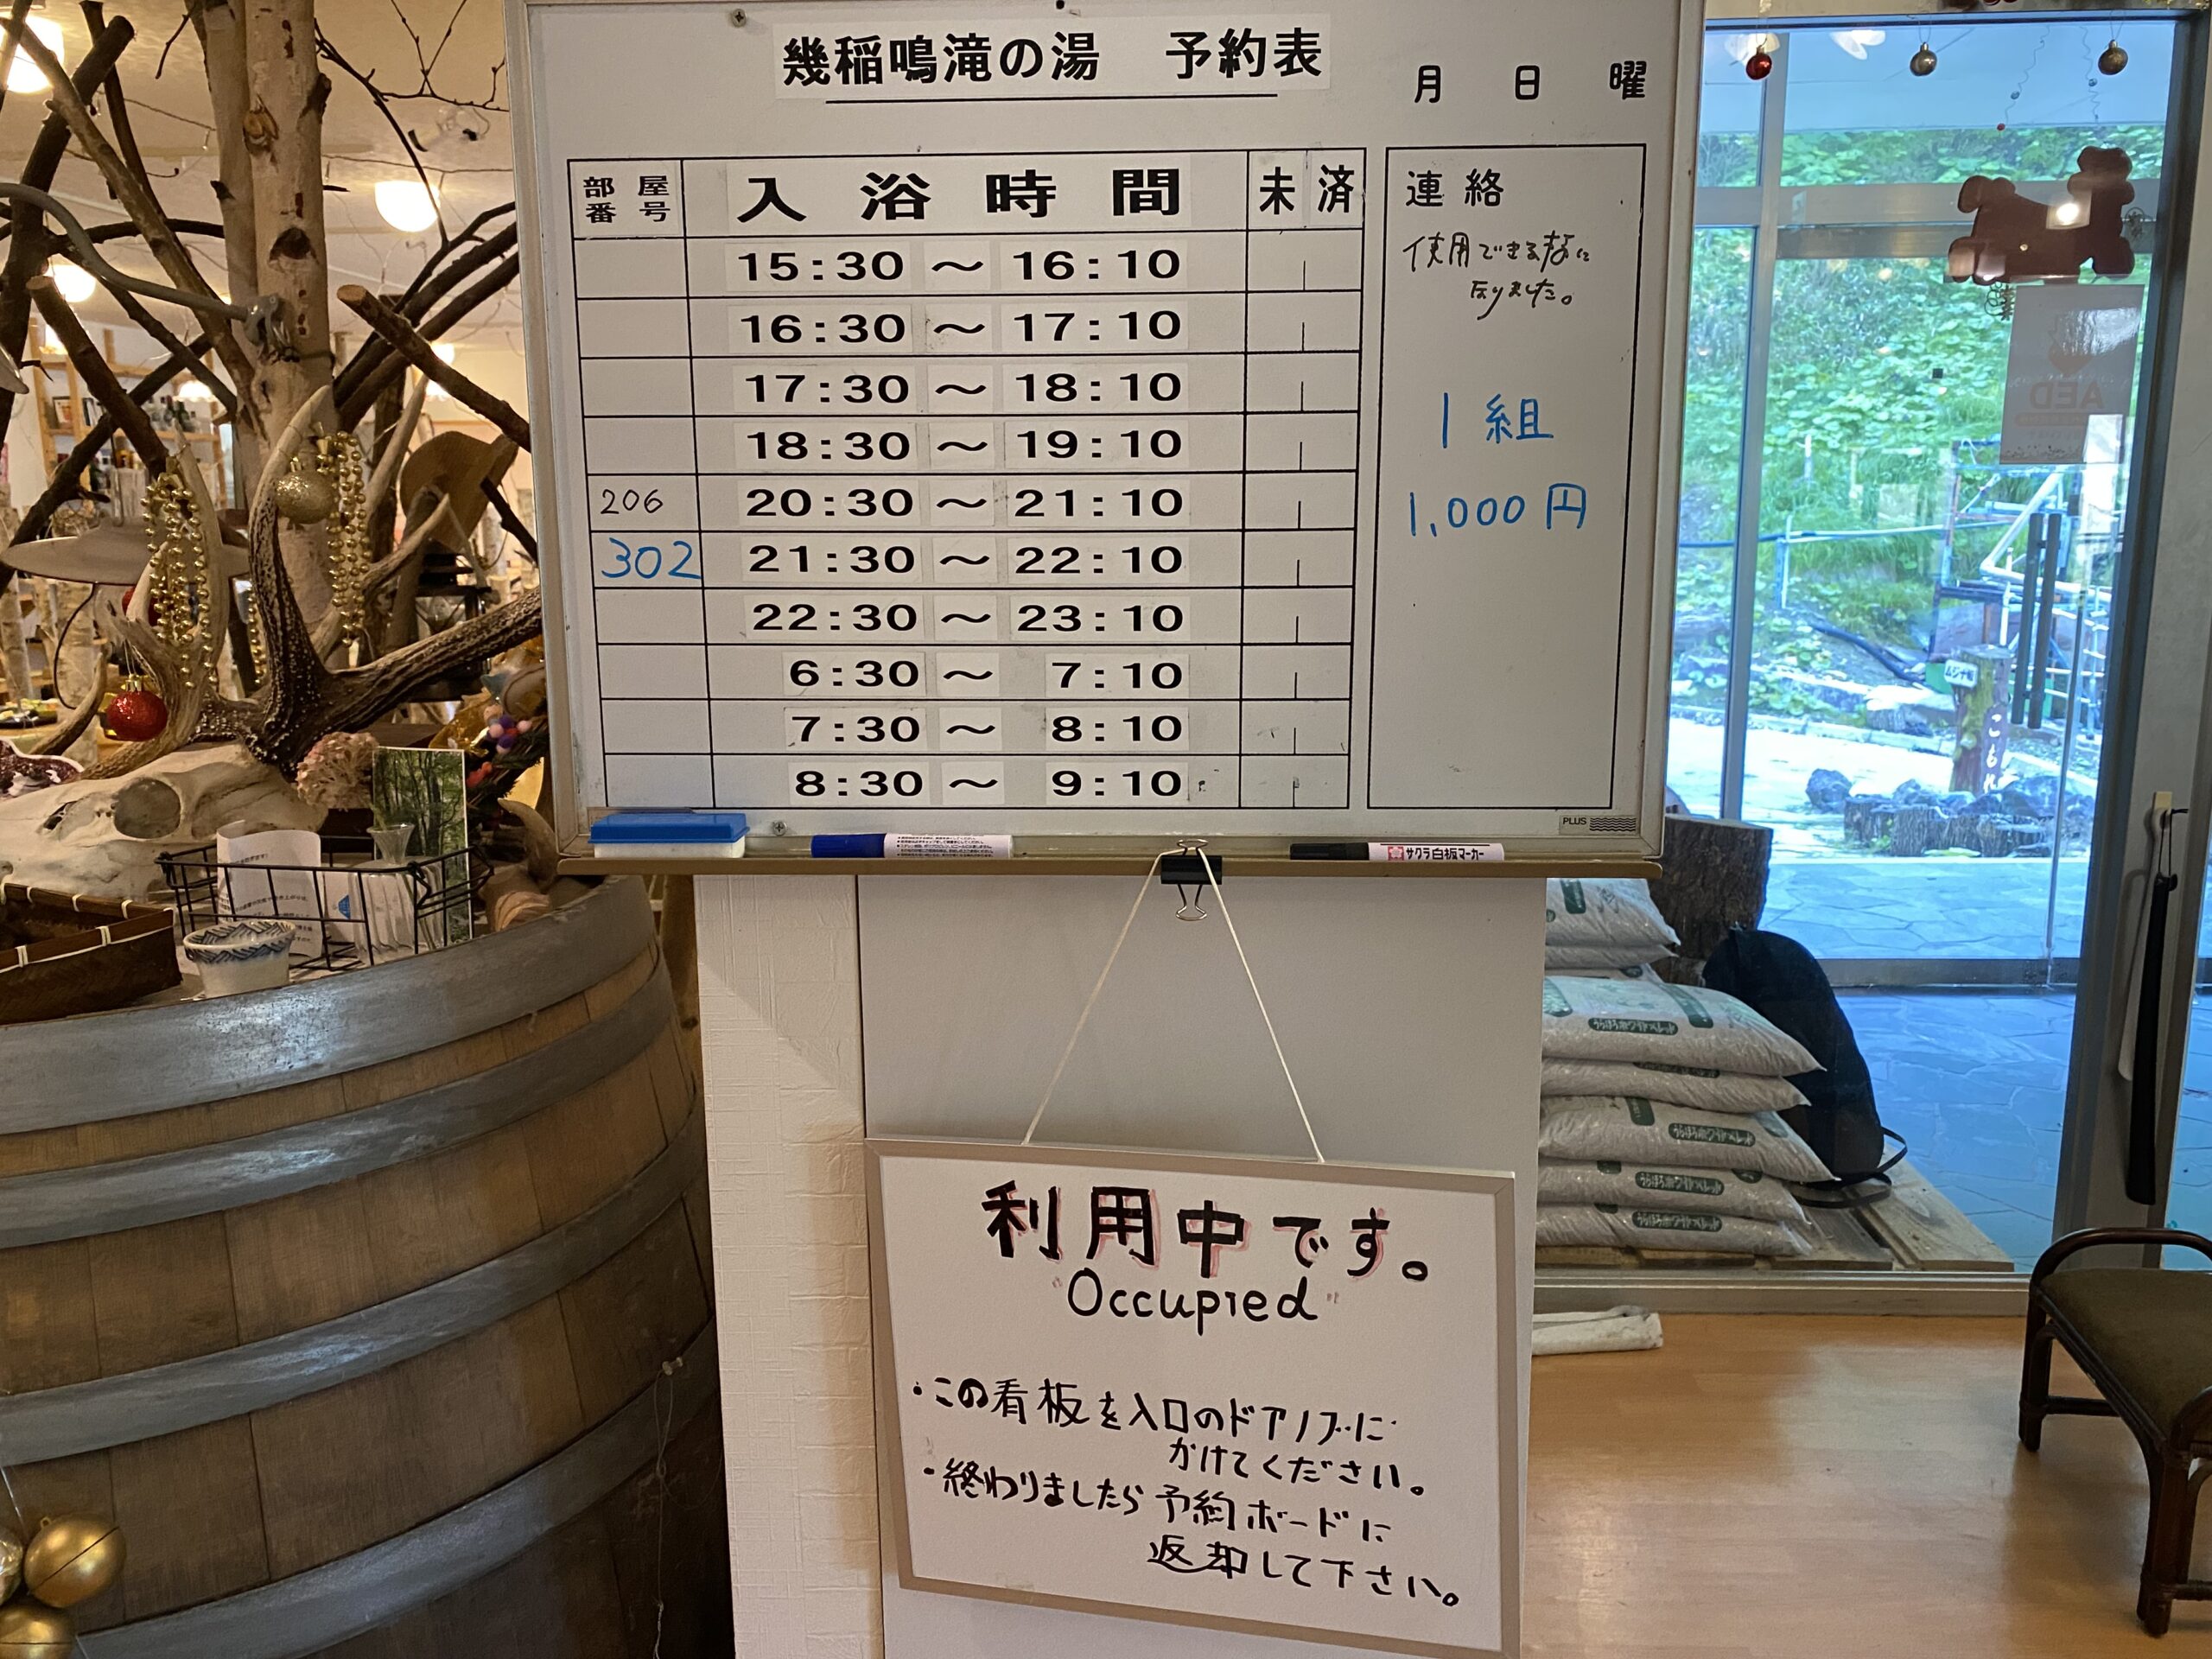 幾稲鳴滝の湯 予約表
月 日 曜
部屋番号 入浴時間 未 済
15:30 ～ 16:10
16:30 ～ 17:10
17:30 ～ 18:10
18:30 ～ 19:10
206 20:30 ～ 21:10
302 21:30 ～ 22:10
22:30 ～ 23:10
6:30 ～ 7:10
7:30 ～ 8:10
8:30 ～ 9:10
連絡
使用できる様に
なりました。
1組
1,000円
PLUS
サクラ白板マーカー
AED
利用中です。
"Occupied"
・この看板を入口のドアノブに
かけてください。
・終わりましたら予約ボードに
返却して下さい。